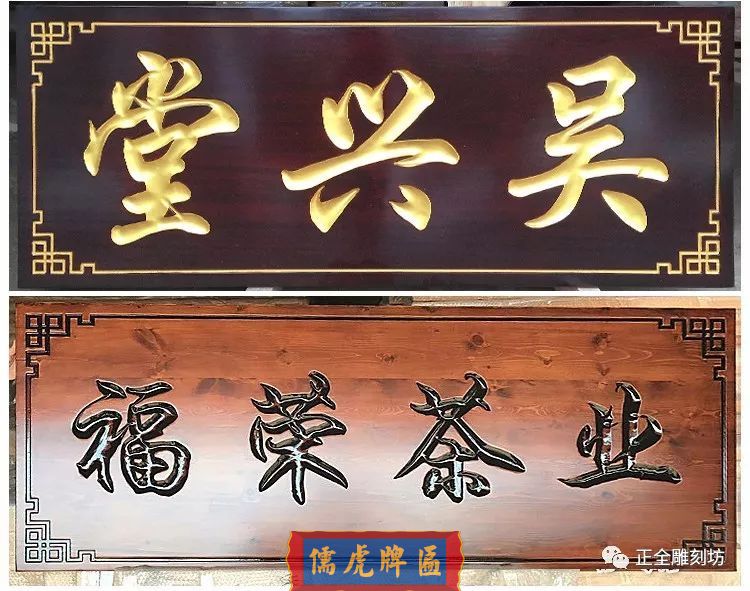 吴兴堂
福荣茶业
儒虎牌匾
正全雕刻坊